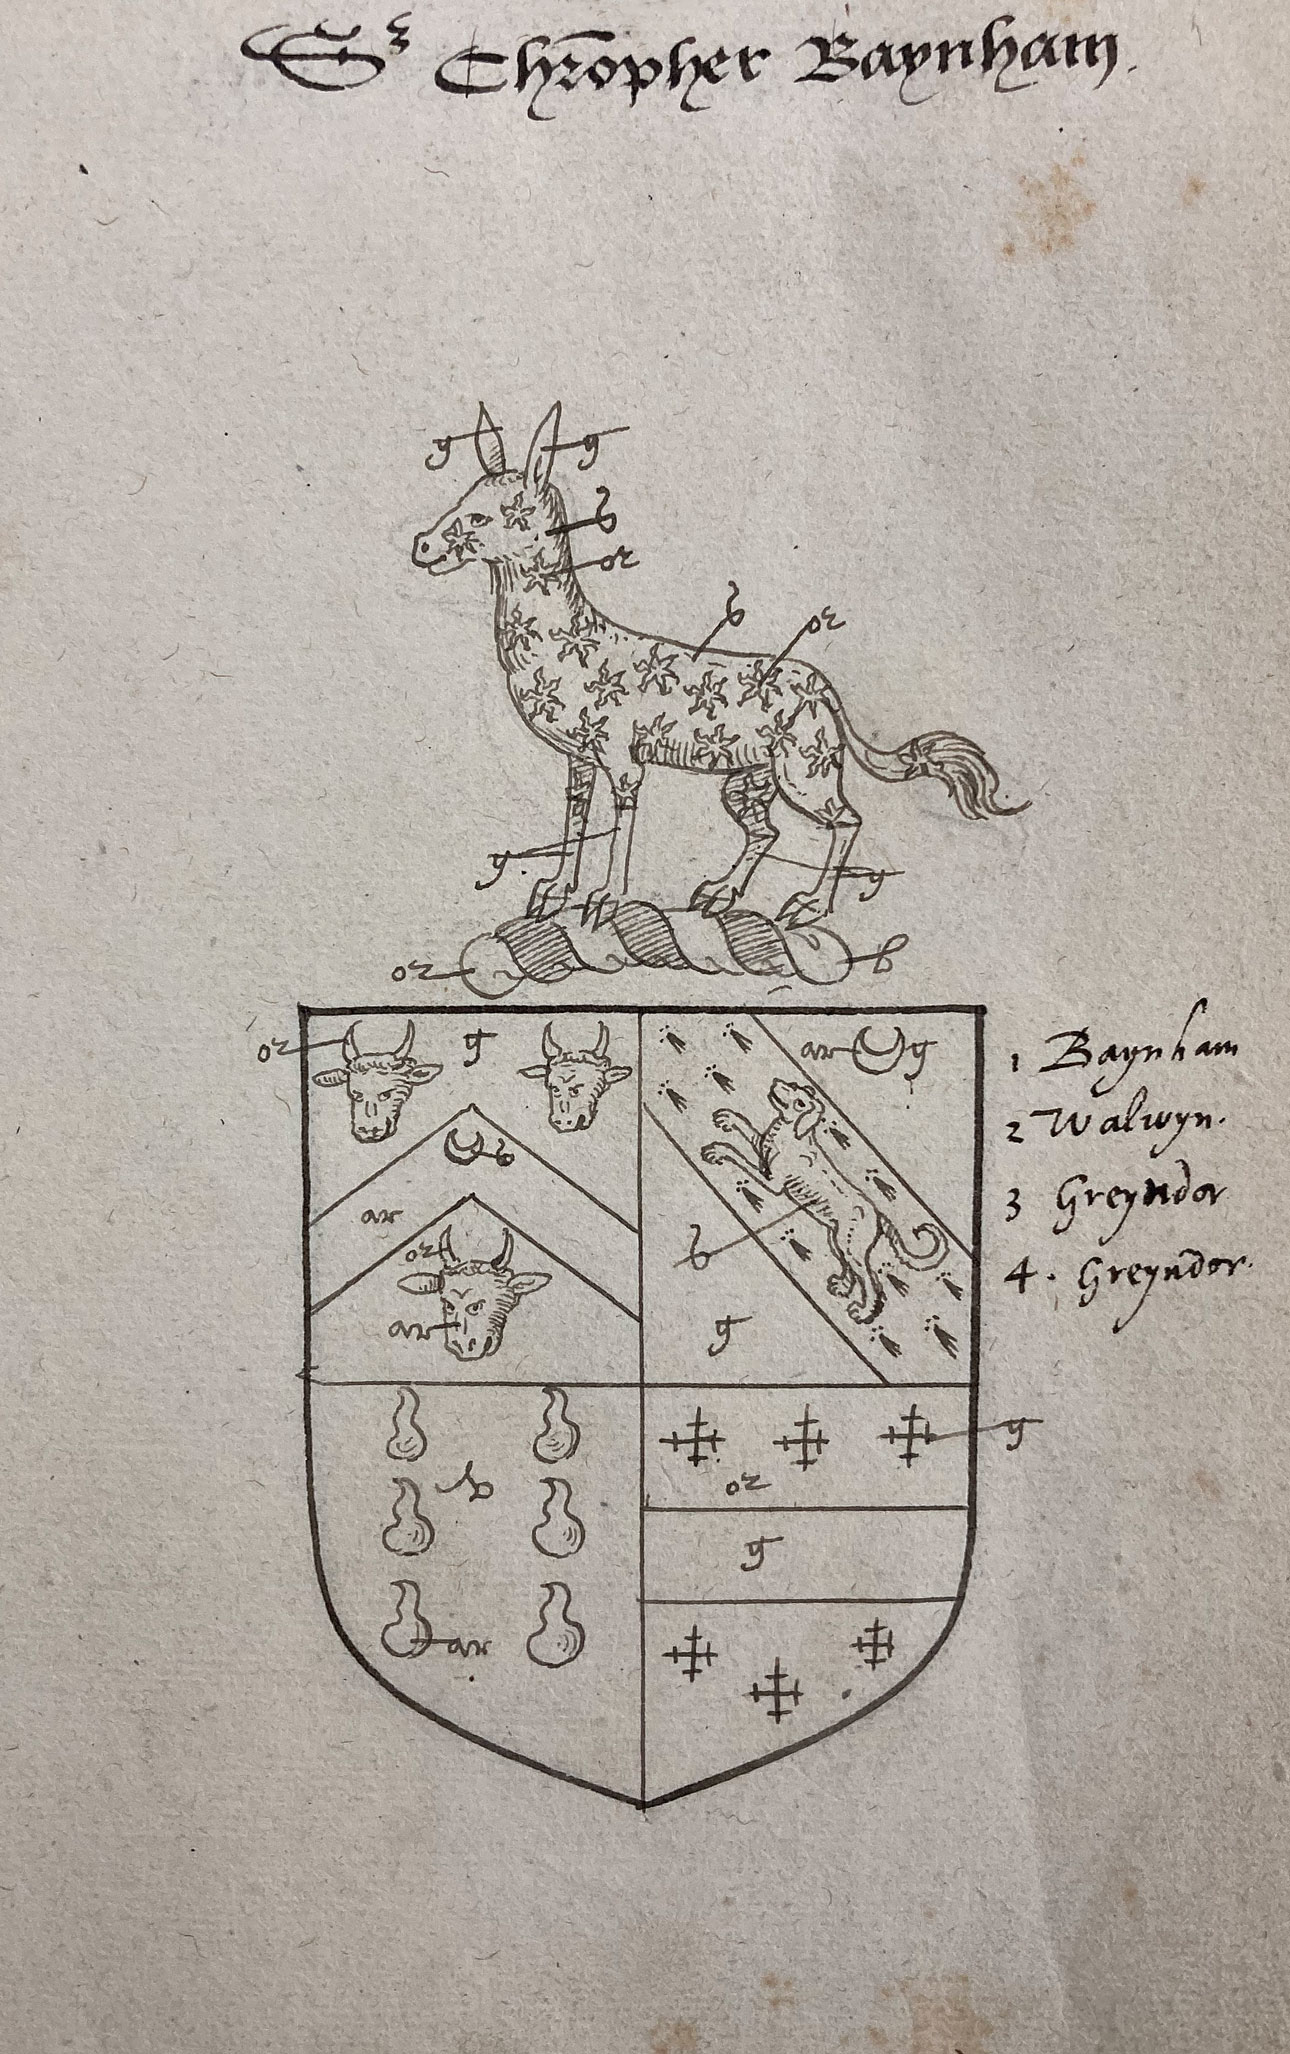 Sr Chrōpher Baynham.
g g
b
or
b or
g. g
or b
or g ar g
b
ar
or
ar
b
g
1 Baynham
2 Walwyn.
3 Greyndor
4. Greyndor.
b
ar
g
or
g